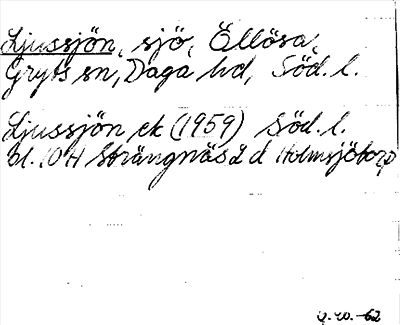 Ljussjön, sjö, Ällösa,
Gryts sn, Daga hd, Söd. l.
Ljussjön ek (1959) Söd. l.
bl. 10 H Strängnäs 2 d Holmsjötorp